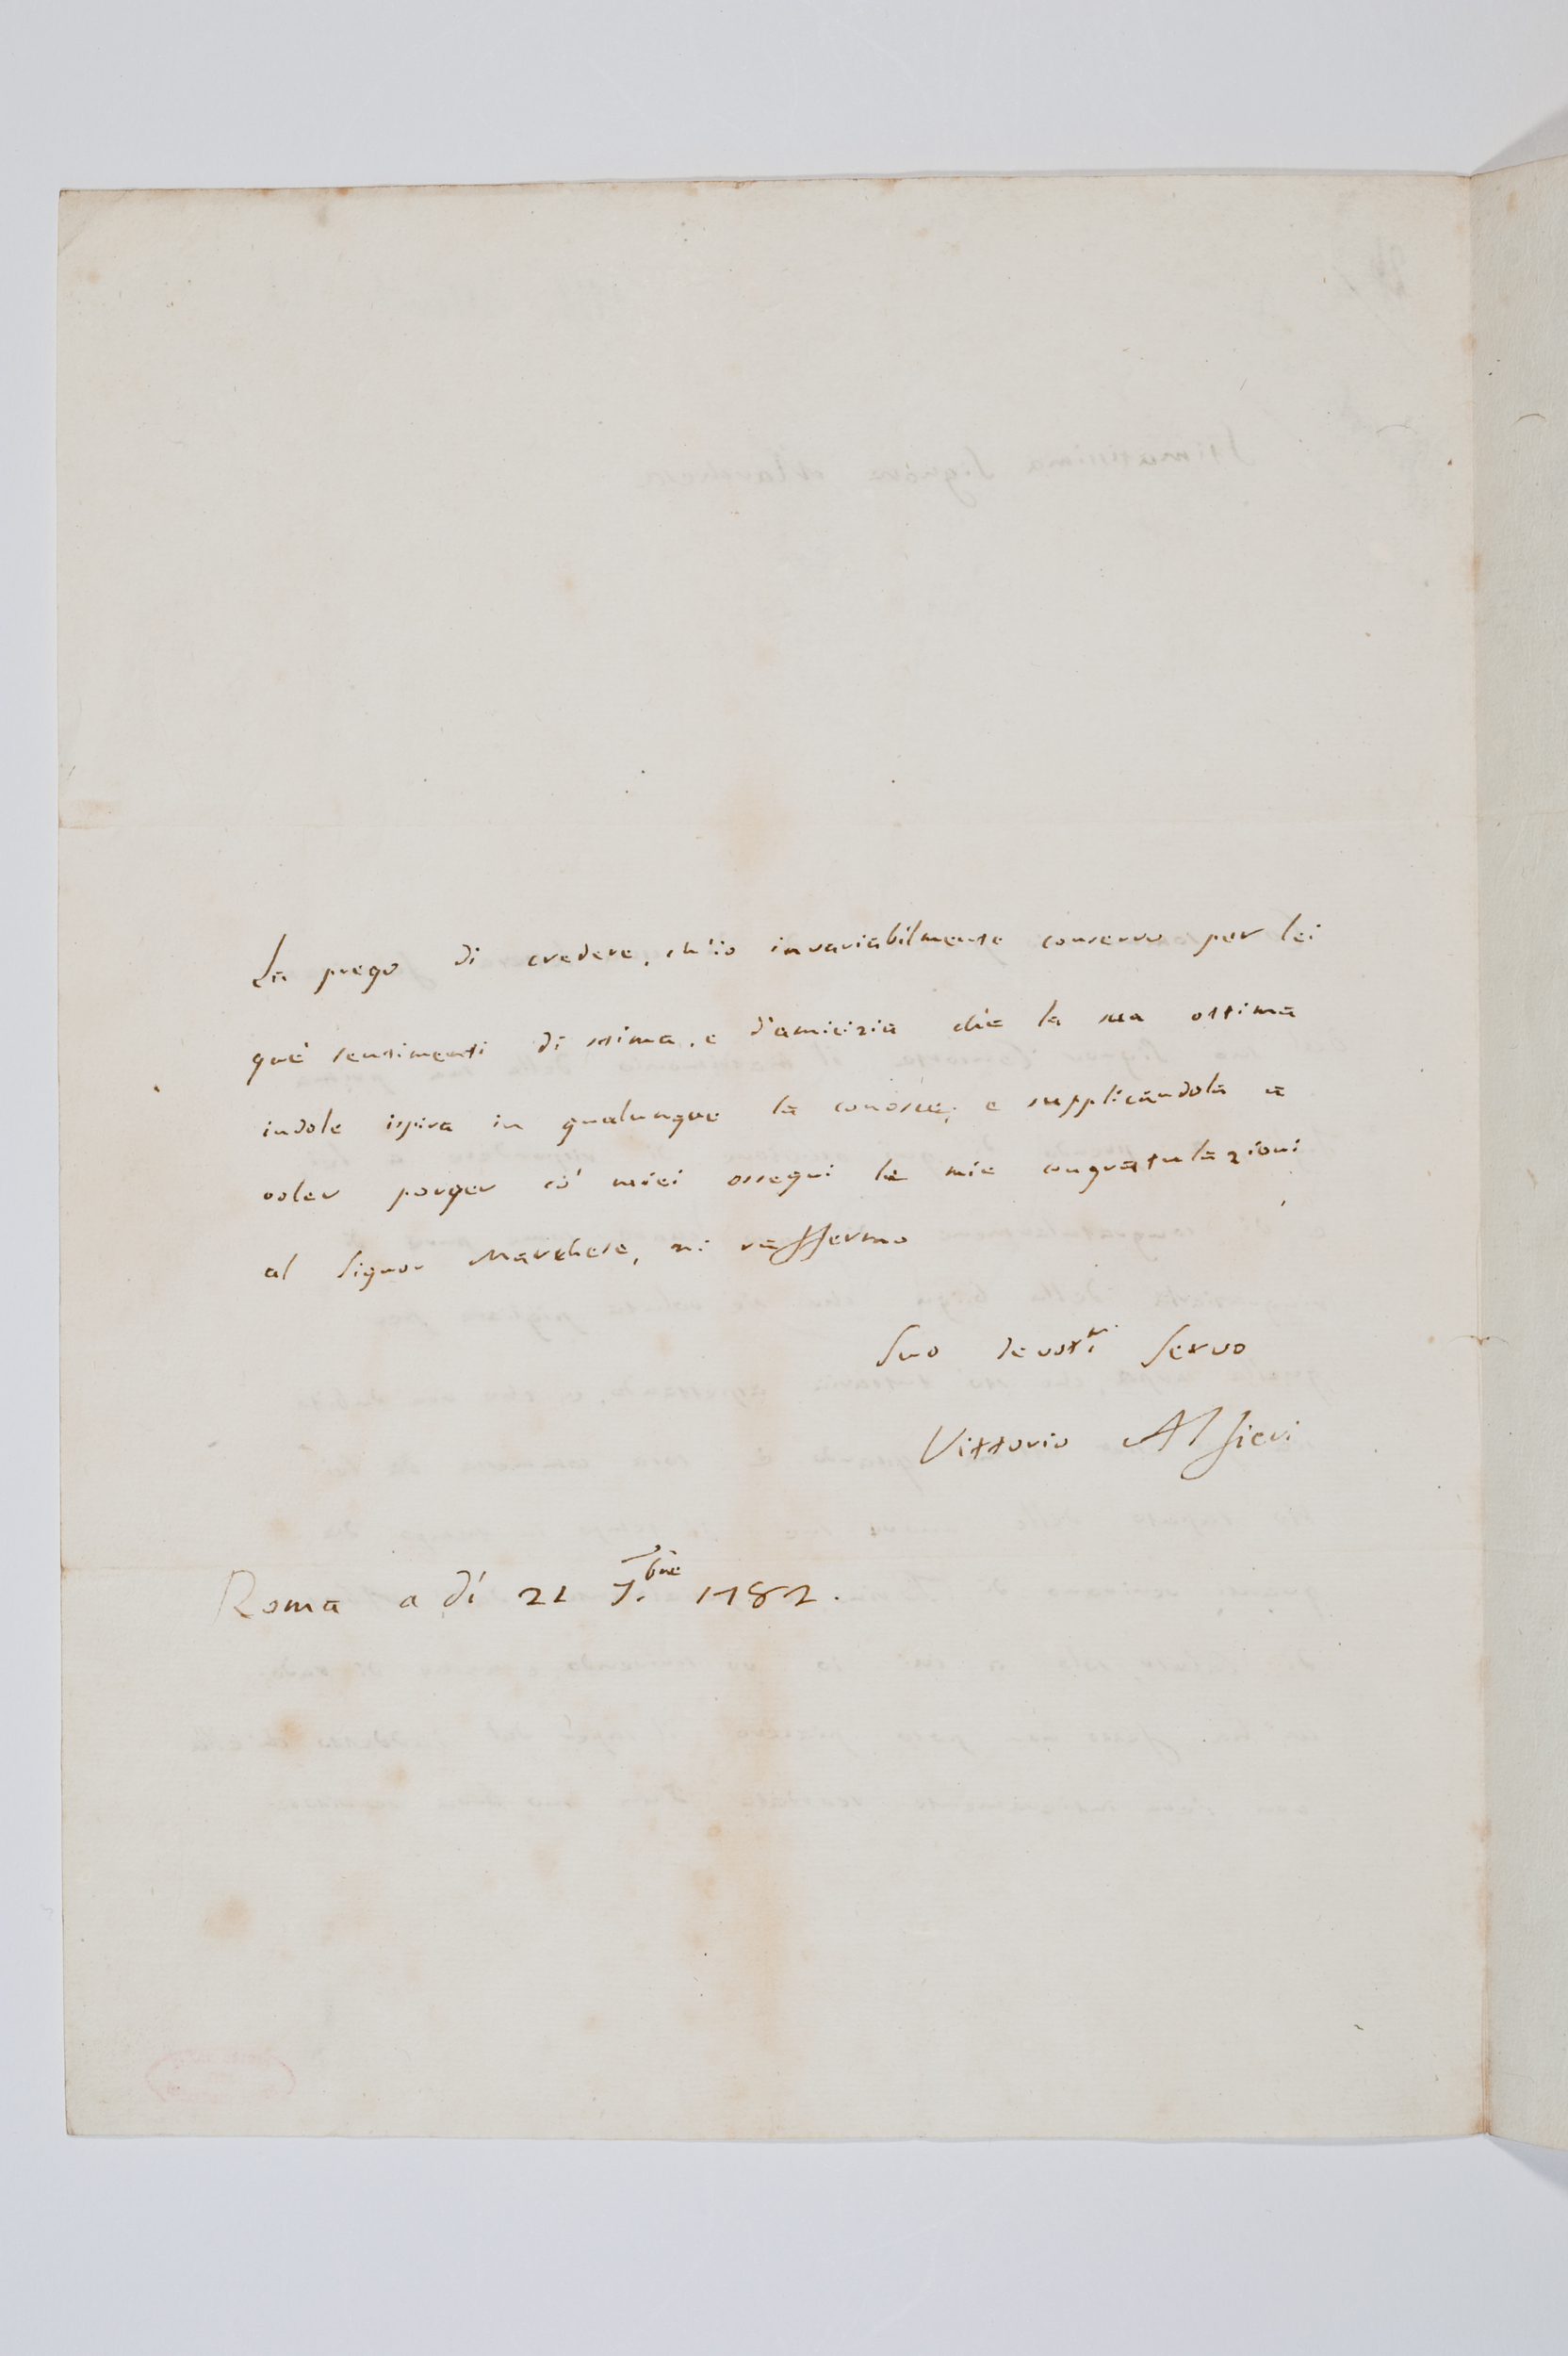 La prego di credere, ch'io invariabilmente conservo per lei
que' sentimenti di stima, e d'amicizia che la sua ottima
indole ispira in qualunque la conosce; e supplicandola a
voler porger co' miei ossequi le mie congratulazioni
al Signor Marchese, mi raffermo
Suo devot.
Servo
Vittorio Alfieri
Roma a dì 21 7.bre 1782.